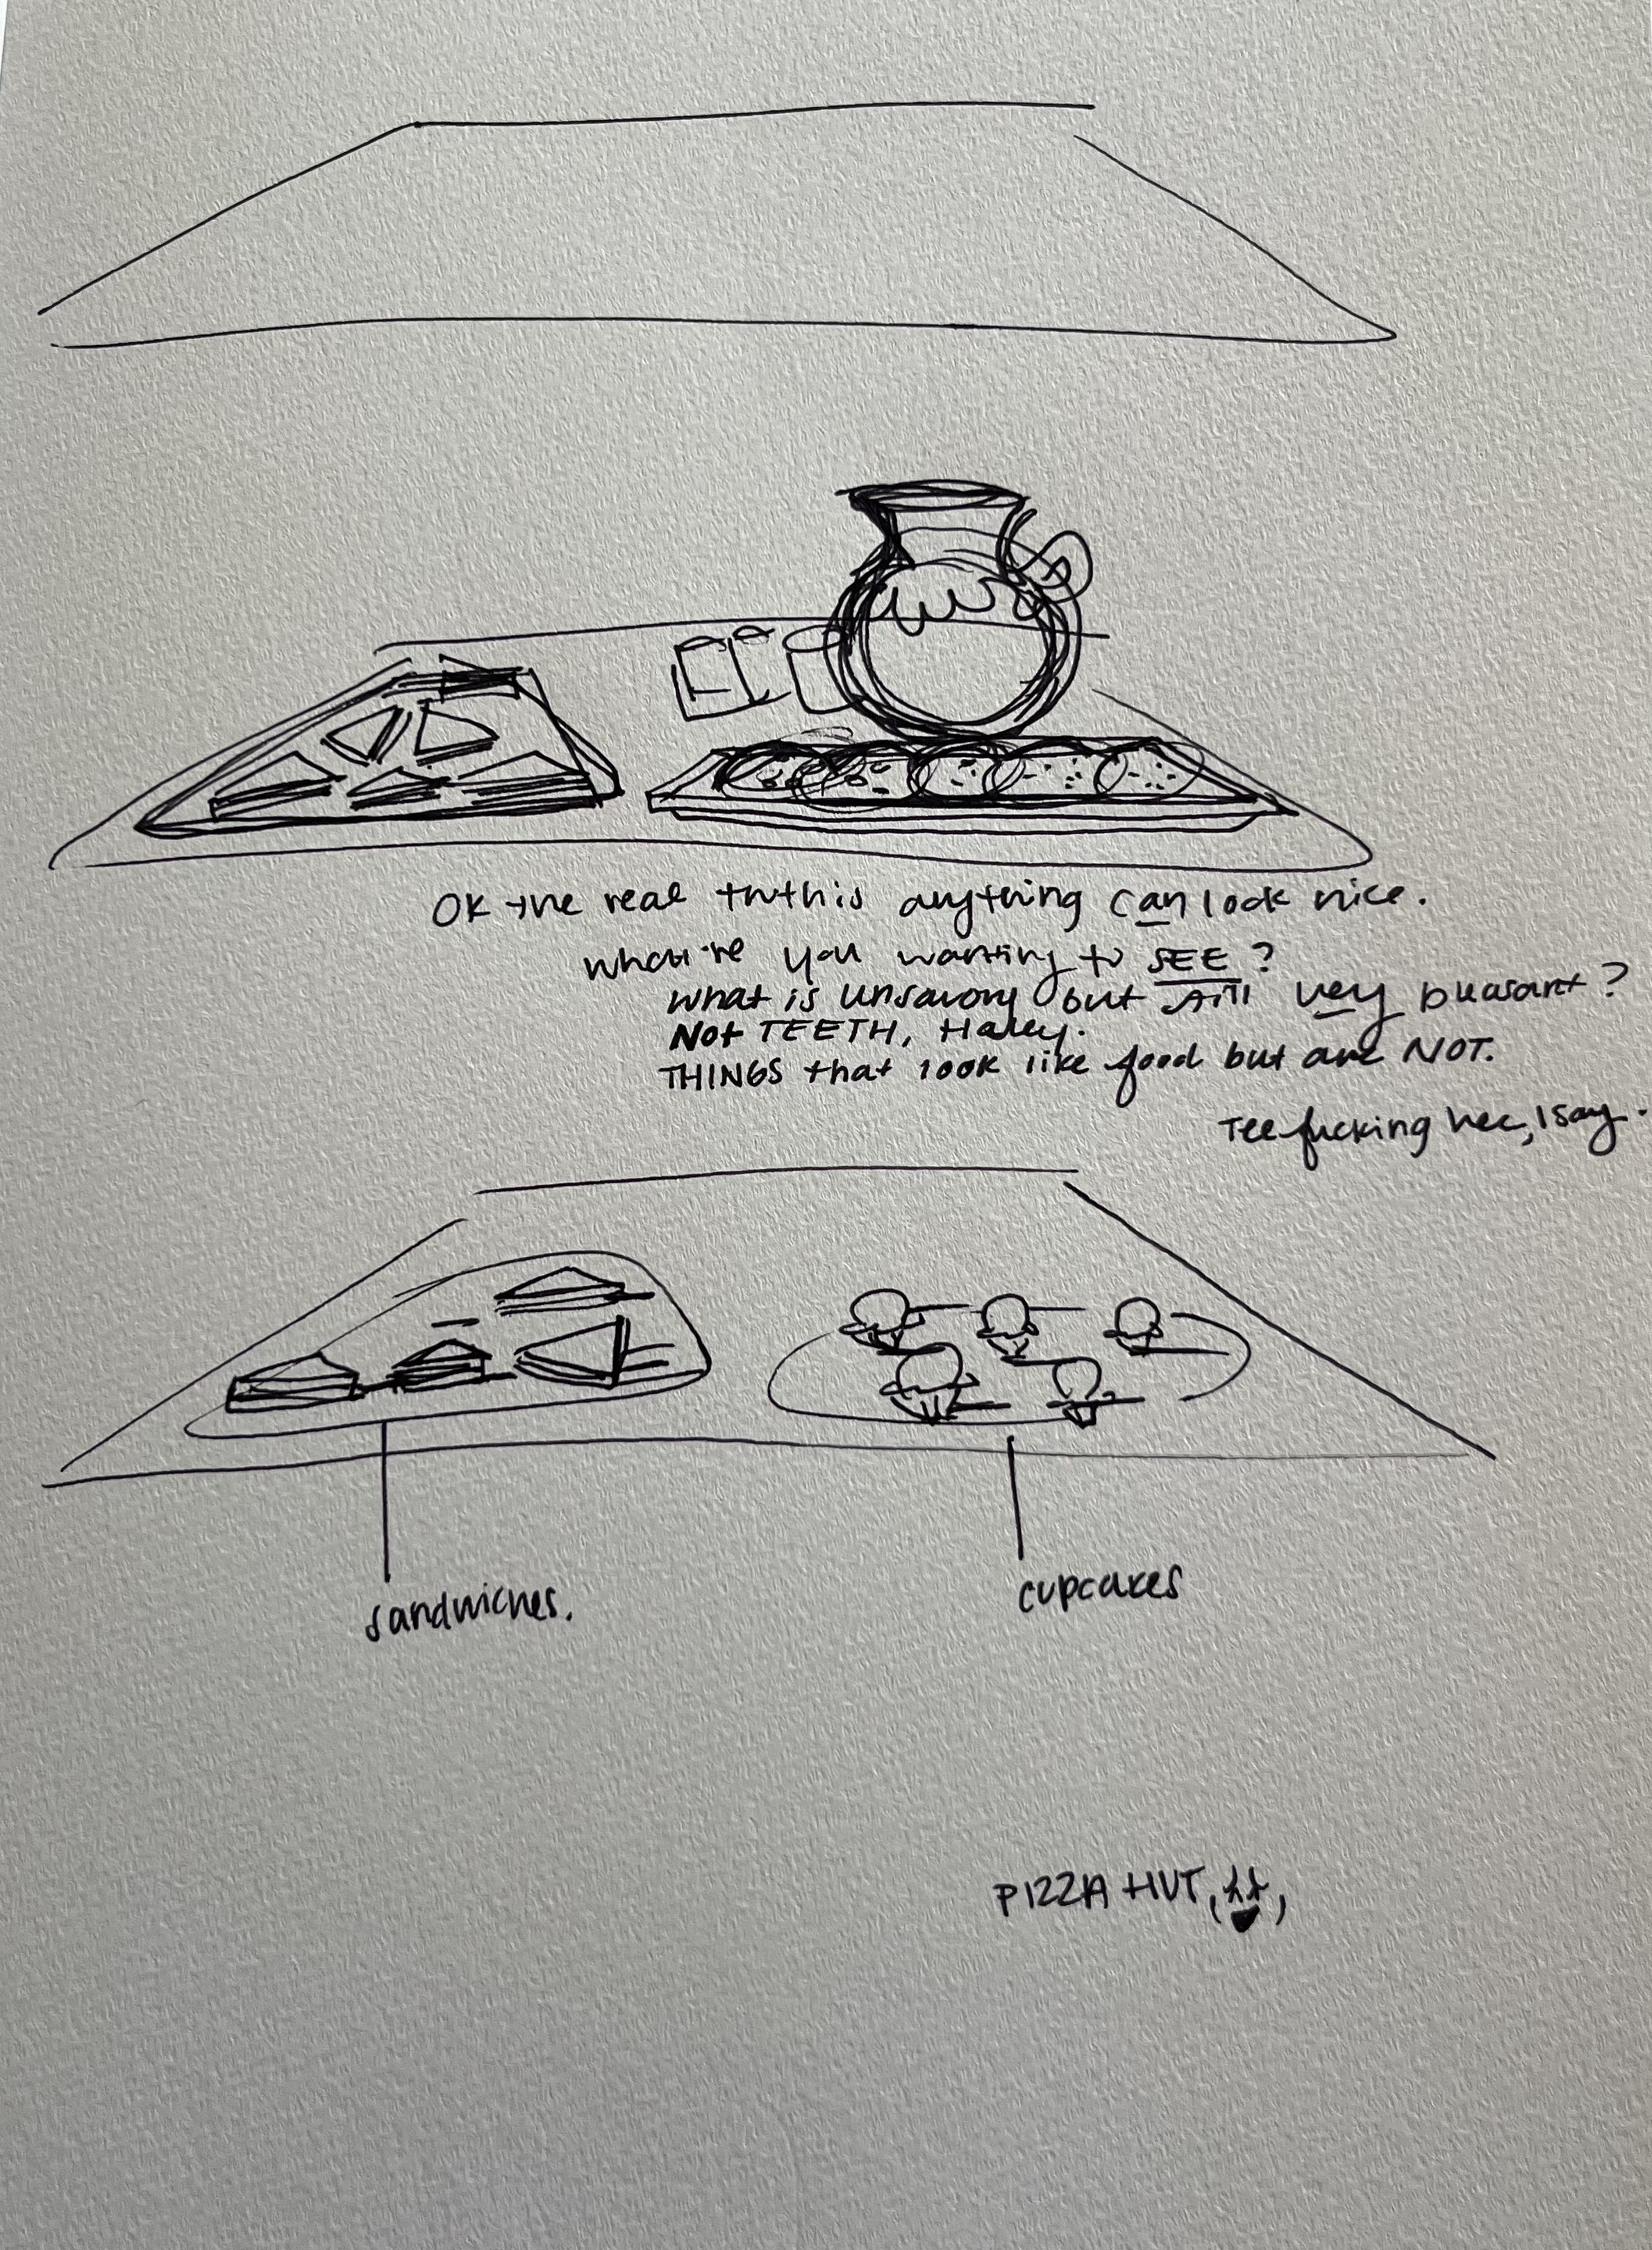 OK the real truth is anything can look nice.
What're you wanting to SEE?
What is unsavory but still very pleasant?
Not TEETH, Haley.
THINGS that look like food but are NOT.
Tee fucking hee, I say.
sandwiches.
cupcakes
PIZZA HUT,